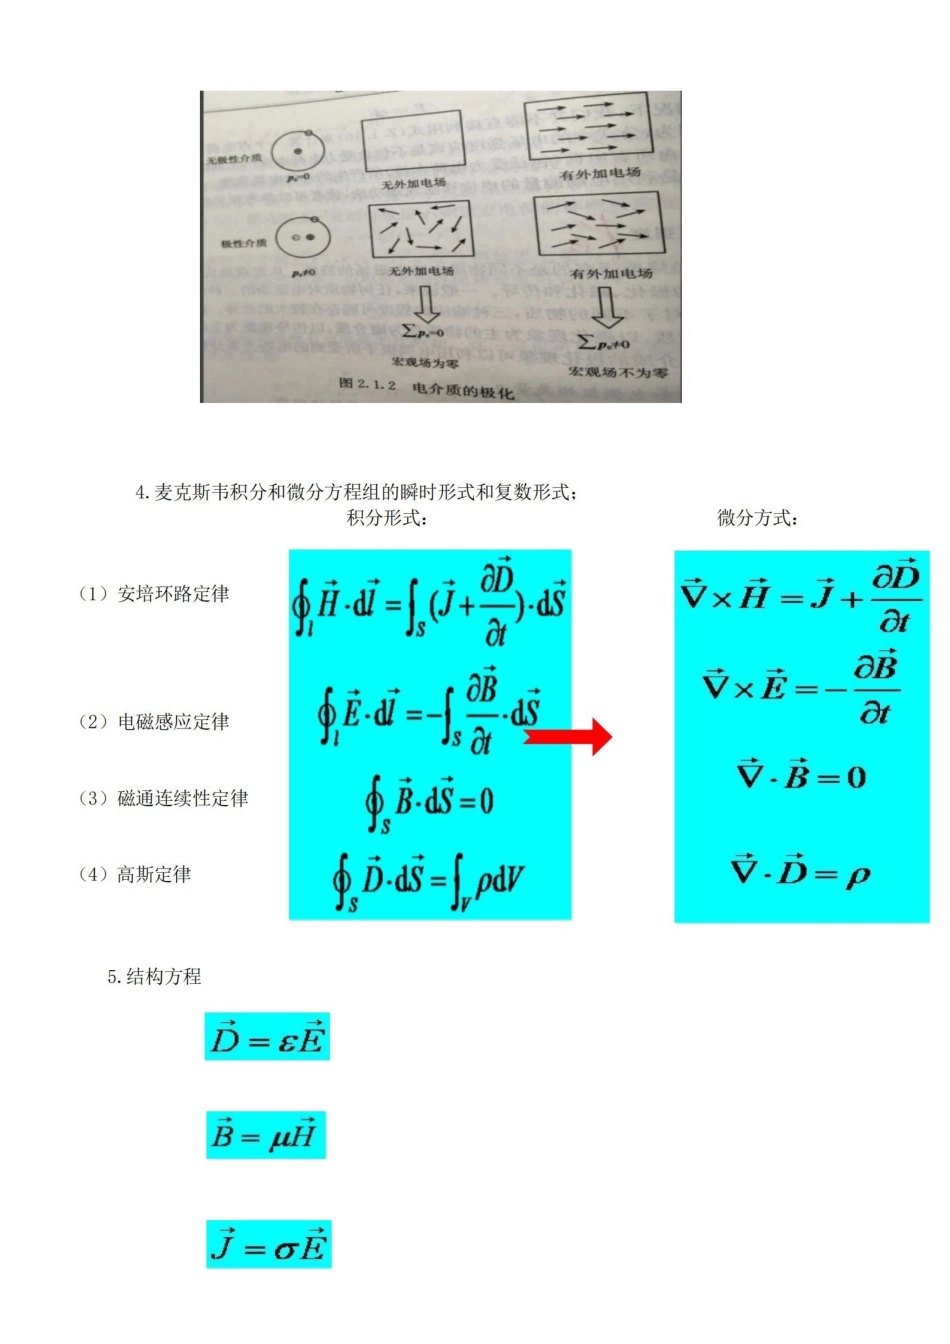 无极性介质
pₑ=0
无外加电场
有外加电场
极性介质
pₑ≠0
无外加电场
有外加电场
∑pₑ=0
∑pₑ≠0
宏观场为零
宏观场不为零
图 2.1.2 电介质的极化
4.麦克斯韦积分和微分方程组的瞬时形式和复数形式;
积分形式: 微分方式:
(1) 安培环路定律 ∮_l H⃗·dl⃗ = ∫_S (J⃗ + ∂D⃗/∂t)·dS⃗ ∇⃗×H⃗ = J⃗ + ∂D⃗/∂t
(2) 电磁感应定律 ∮_l E⃗·dl⃗ = -∫_S ∂B⃗/∂t·dS⃗ ∇⃗×E⃗ = -∂B⃗/∂t
(3) 磁通连续性定律 ∮_S B⃗·dS⃗ = 0 ∇⃗·B⃗ = 0
(4) 高斯定律 ∮_S D⃗·dS⃗ = ∫_V ρdV ∇⃗·D⃗ = ρ
5.结构方程
D⃗ = εE⃗
B⃗ = μH⃗
J⃗ = σE⃗